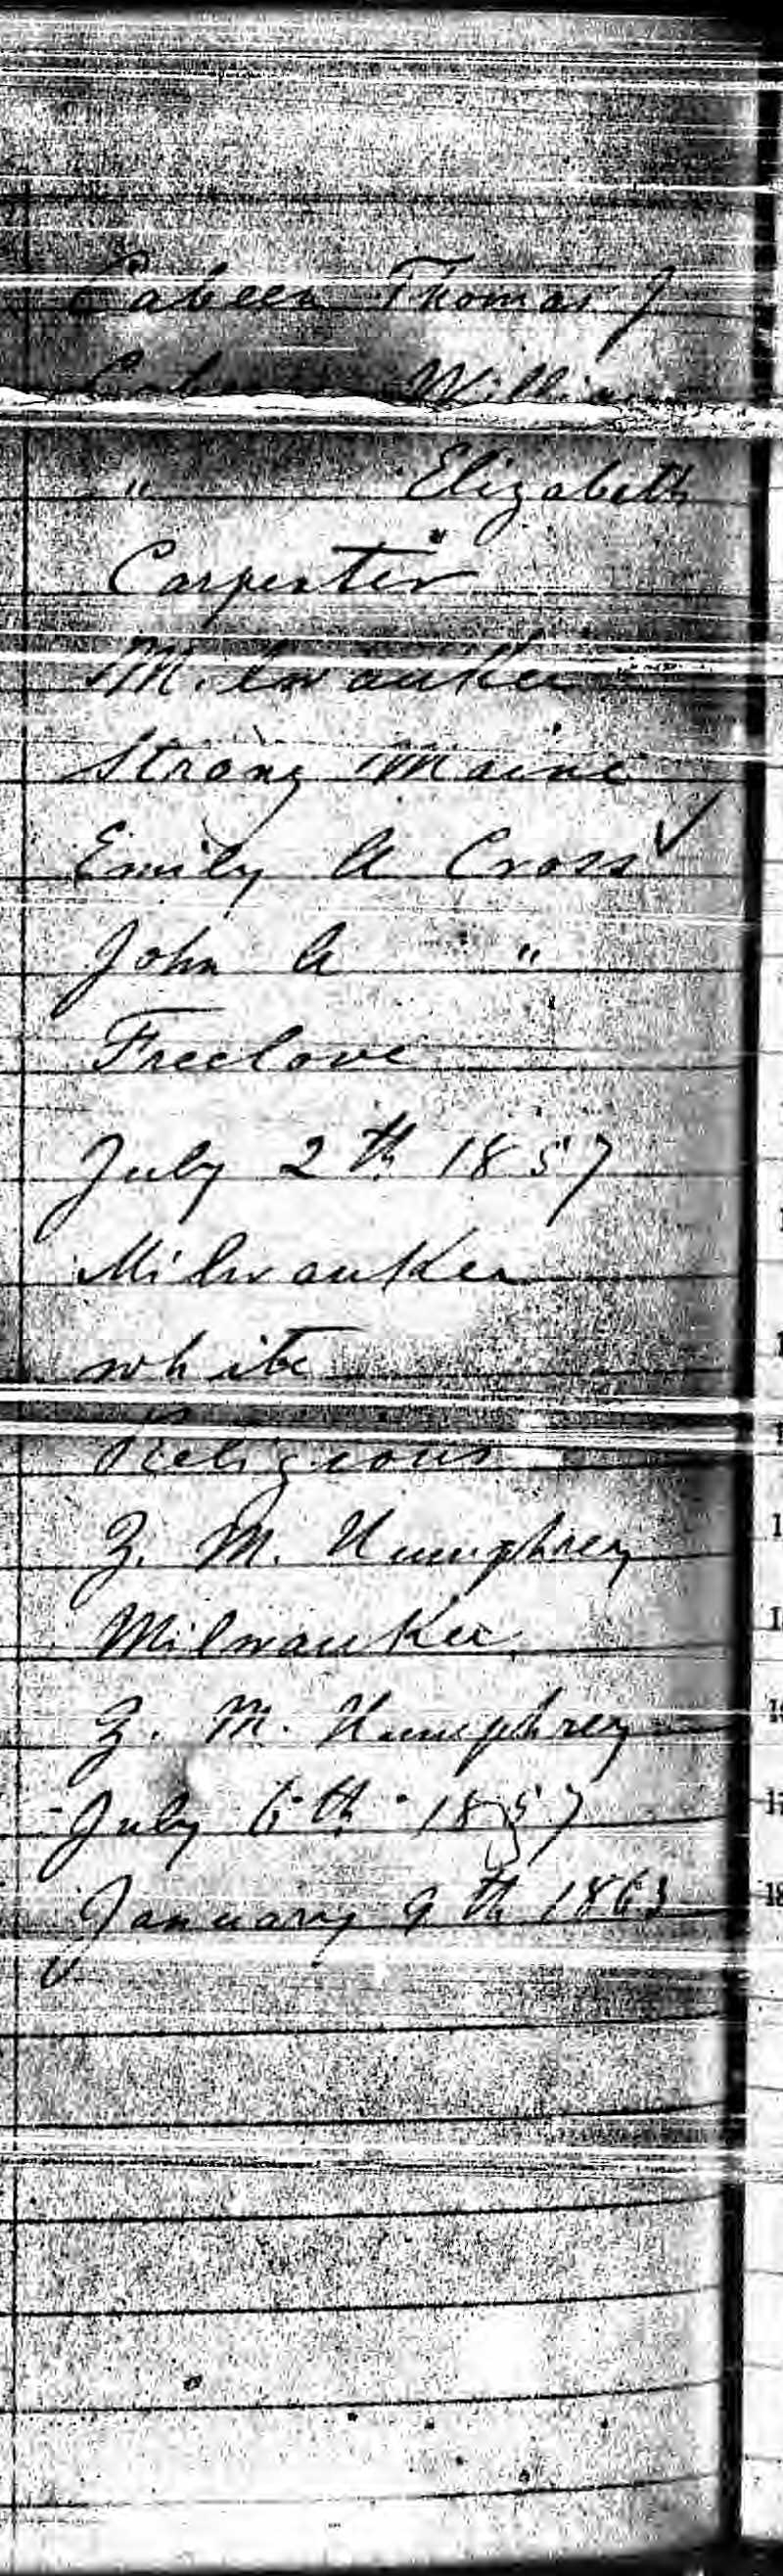 Cabeen Thomas J
William
" Elizabeth
Carpenter
Milwaukee
Strong Maine
Emily A Cross
John A "
Freelove
July 2th 1857
Milwaukee
white
Religious
Z. M. Humphrey
Milwaukee
Z. M. Humphrey
July 6th 1857
January 9th 1863